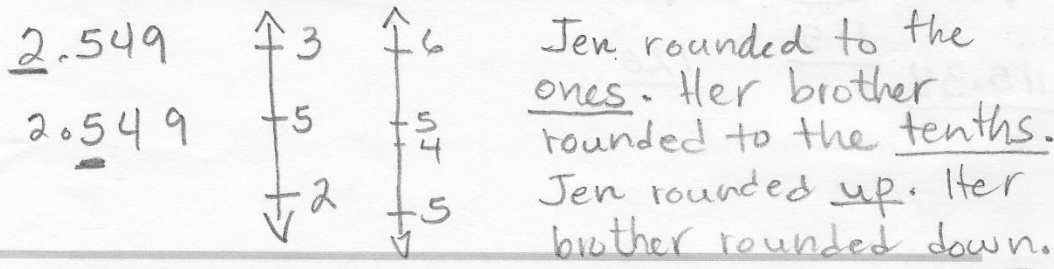 2.549
2.549
3
5
2
6
5
4
5
Jen rounded to the
ones. Her brother
rounded to the tenths.
Jen rounded up. Her
brother rounded down.